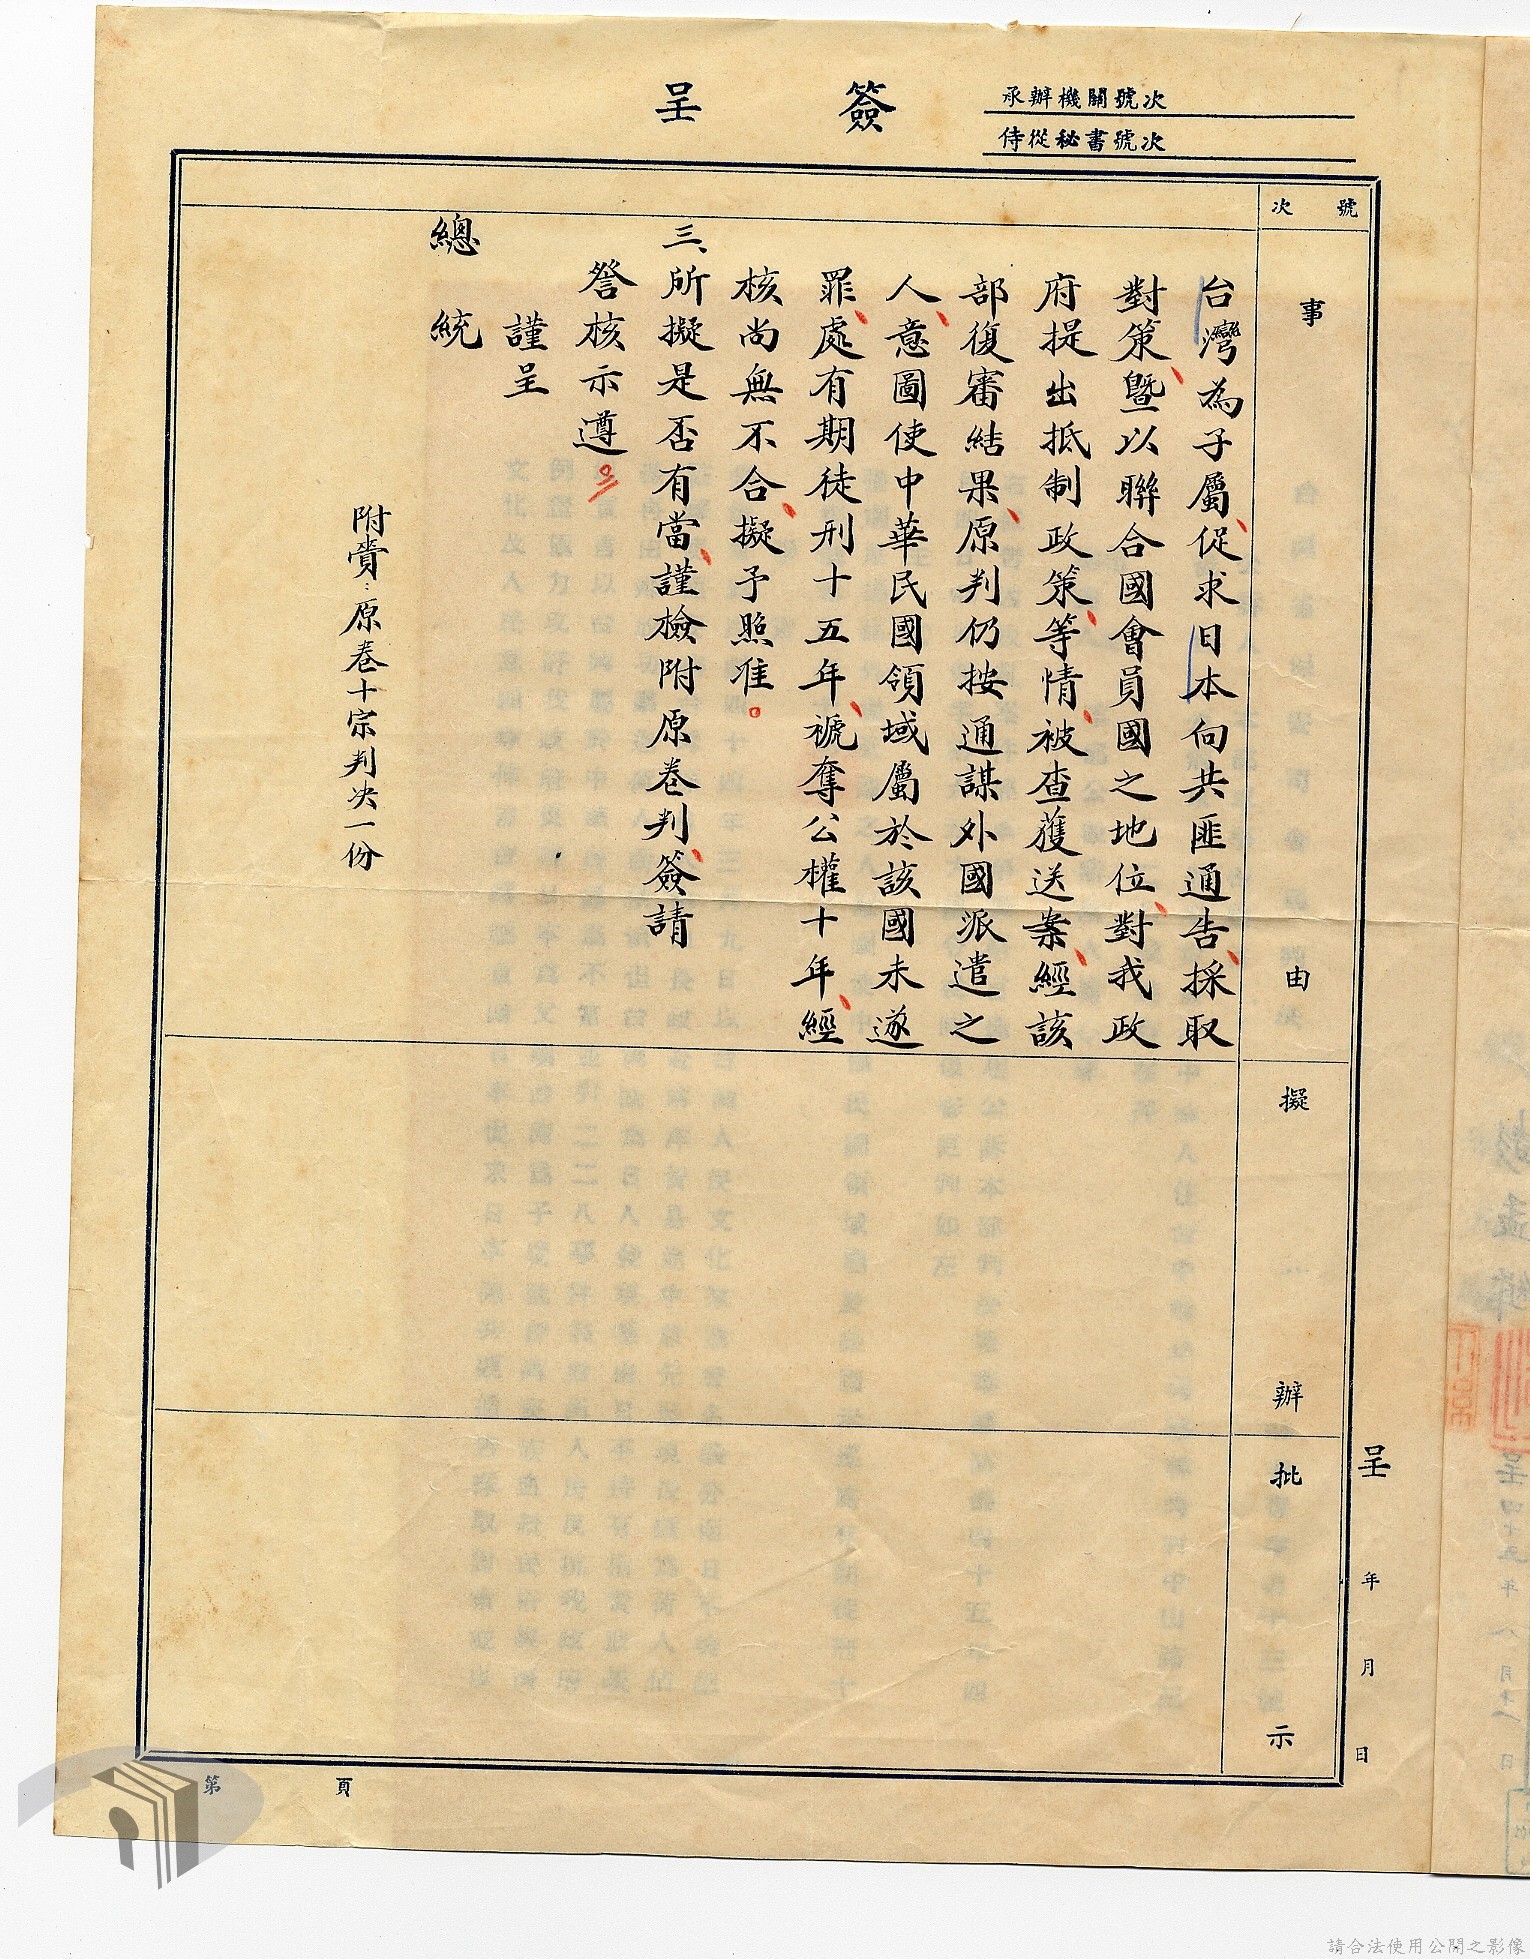 簽呈
承辦機關號次
侍從秘書號次
號次
事由
擬辦
批示
台灣為子屬、促求日本向共匪通告、採取
對策、暨以聯合國會員國之地位、對我政
府提出抵制政策、等情、被查獲送案、經該
部復審結果、原判仍按通謀外國派遣之
人、意圖使中華民國領域屬於該國未遂
罪、處有期徒刑十五年、褫奪公權十年、經
核尚無不合、擬予照准。
三、所擬是否有當、謹檢附原卷判、簽請
詧核示遵。
謹呈
總統
附賫:原卷十宗判決一份
呈 年 月 日
第 頁
呈四十五年八月十八日
請合法使用公開之影像